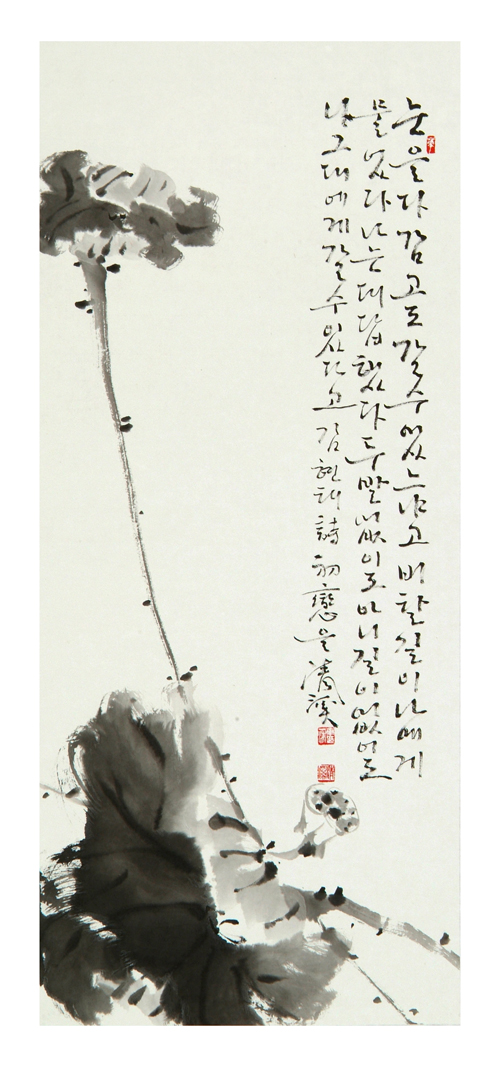 눈을 다 감고도 갈 수 있느냐고 비탈길이 나에게
물었다 나는 대답했다 두 발 없이도 아니 길이 없어도
나 그대에게 갈 수 있다고 김현태 詩 初戀을 淸溪